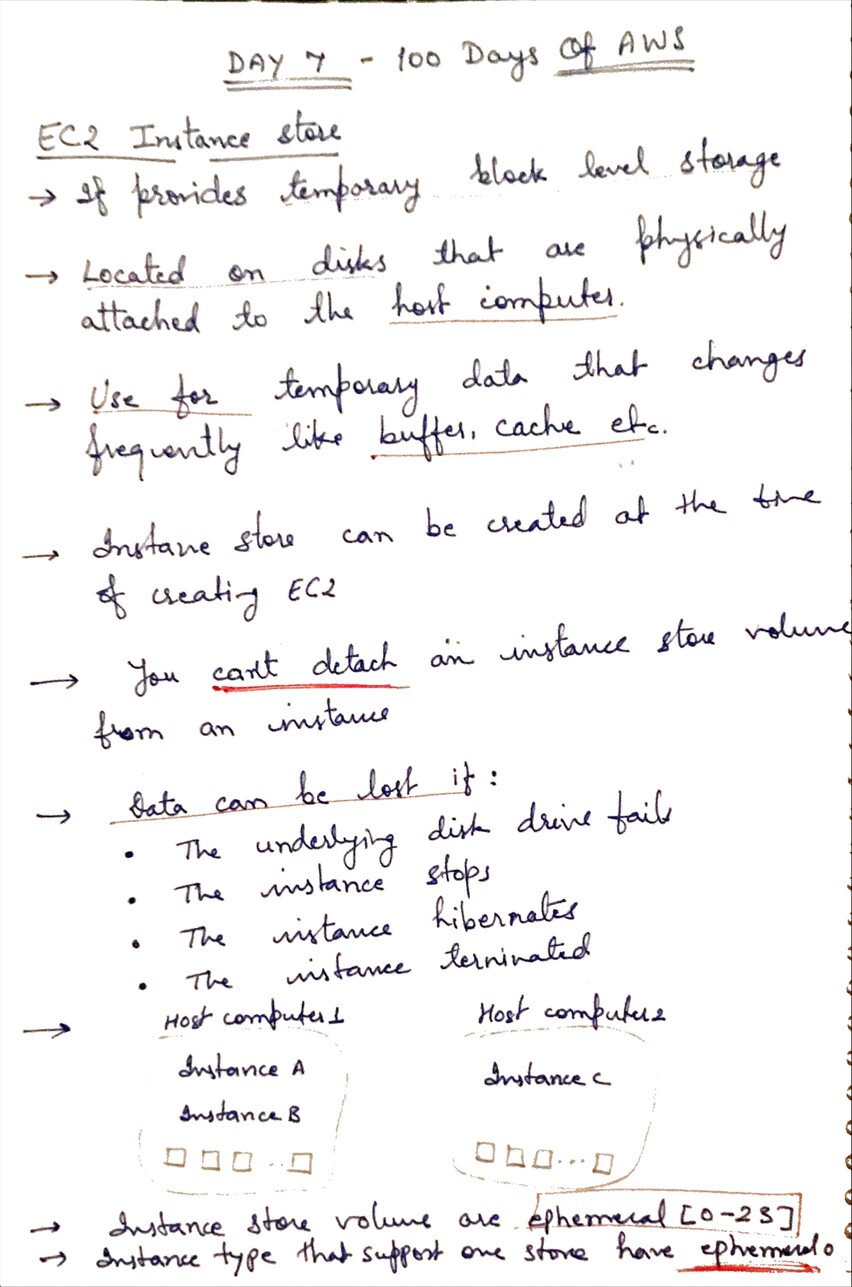 DAY 7 - 100 Days Of AWS
EC2 Instance store
→ It provides temporary block level storage
→ Located on disks that are physically
attached to the host computer.
→ Use for temporary data that changes
frequently like buffer, cache etc.
→ Instane store can be created at the time
of creating EC2
→ You can't detach an instance store volume
from an instance
→ Data can be lost if :
• The underlying disk drive fails
• The instance stops
• The instance hibernates
• The instance terninated
→ Host computer 1 Host computer 2
Instance A Instance C
Instance B
→ Instance store volume are ephemeral [0-23]
→ Instance type that support one store have ephemeral0